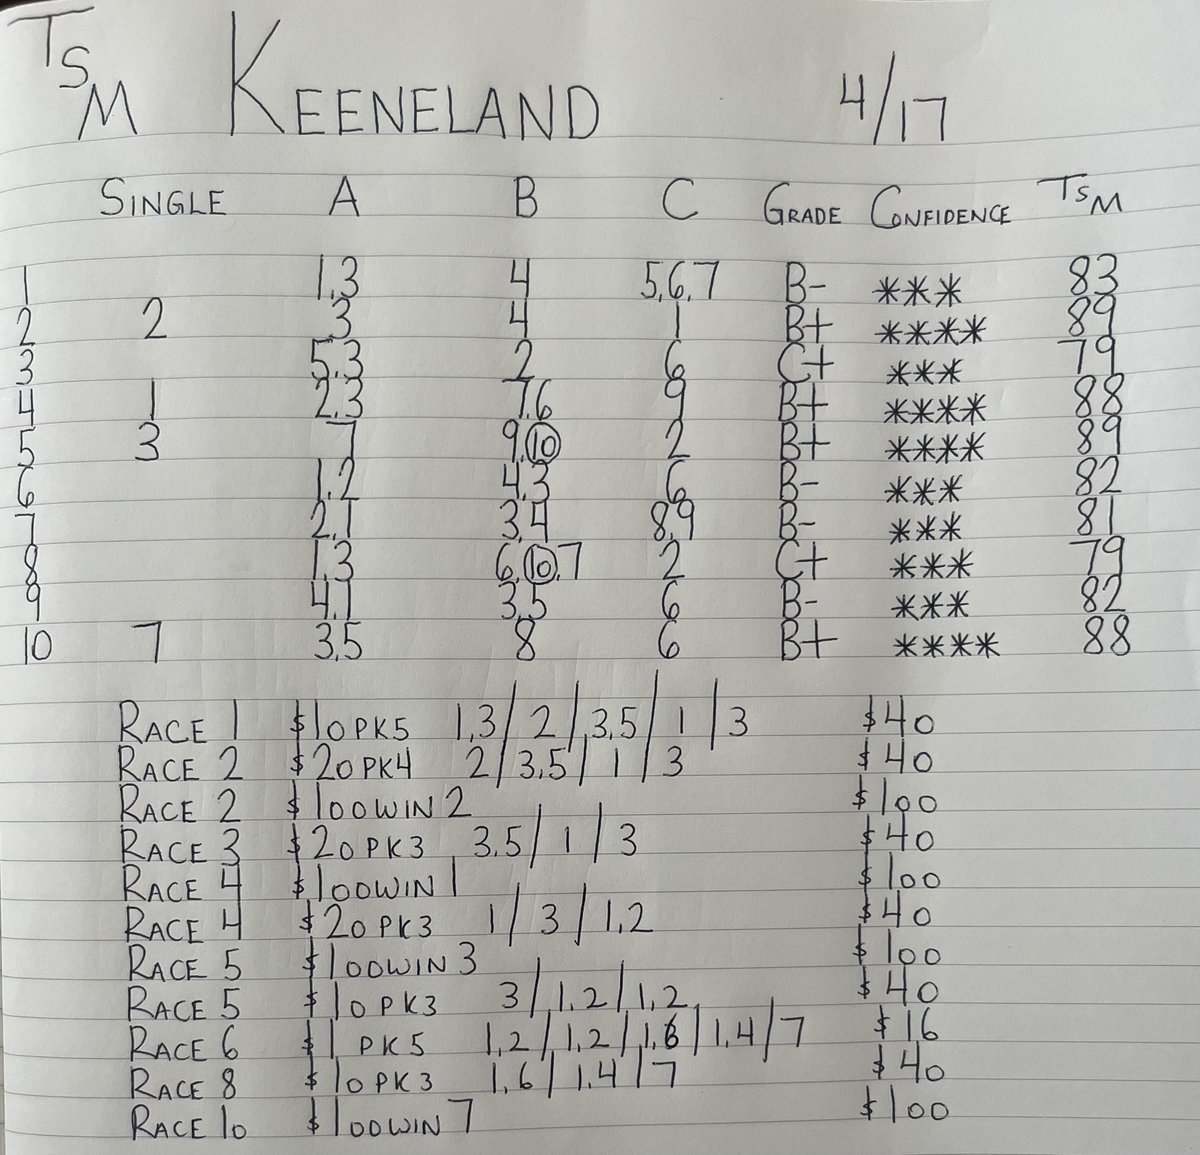 TSM KEENELAND 4/17
SINGLE A B C GRADE CONFIDENCE TSM
1 1,3 4 5,6,7 B- *** 83
2 2 3 4 1 B+ **** 89
3 5,3 2 6 C+ *** 79
4 1 2,3 7,6 9 B+ **** 88
5 3 7 9,10 2 B+ **** 89
6 1,2 4,3 6 B- *** 82
7 2,1 3,4 8,9 B- *** 81
8 1,3 6,10,7 2 C+ *** 79
9 4,1 3,5 6 B- *** 82
10 7 3,5 8 6 B+ **** 88
RACE 1 $10 PK5 1,3/2/3,5/1/3 $40
RACE 2 $20 PK4 2/3,5/1/3 $40
RACE 2 $100 WIN 2 $100
RACE 3 $20 PK3 3,5/1/3 $40
RACE 4 $100 WIN 1 $100
RACE 4 $20 PK3 1/3/1,2 $40
RACE 5 $100 WIN 3 $100
RACE 5 $10 PK3 3/1,2/1,2 $40
RACE 6 $1 PK5 1,2/1,2/1,6/1,4/7 $16
RACE 8 $10 PK3 1,6/1,4/7 $40
RACE 10 $100 WIN 7 $100